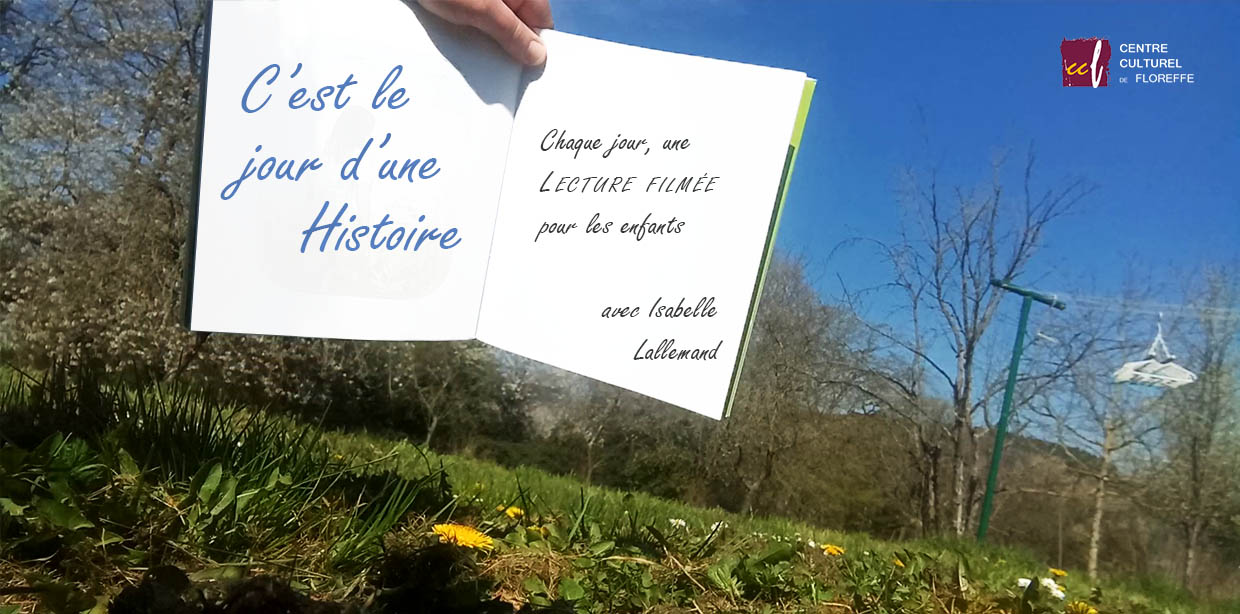 C'est le
jour d'une
Histoire
Chaque jour, une
LECTURE FILMÉE
pour les enfants
avec Isabelle
Lallemand
ccl
CENTRE
CULTUREL
DE FLOREFFE